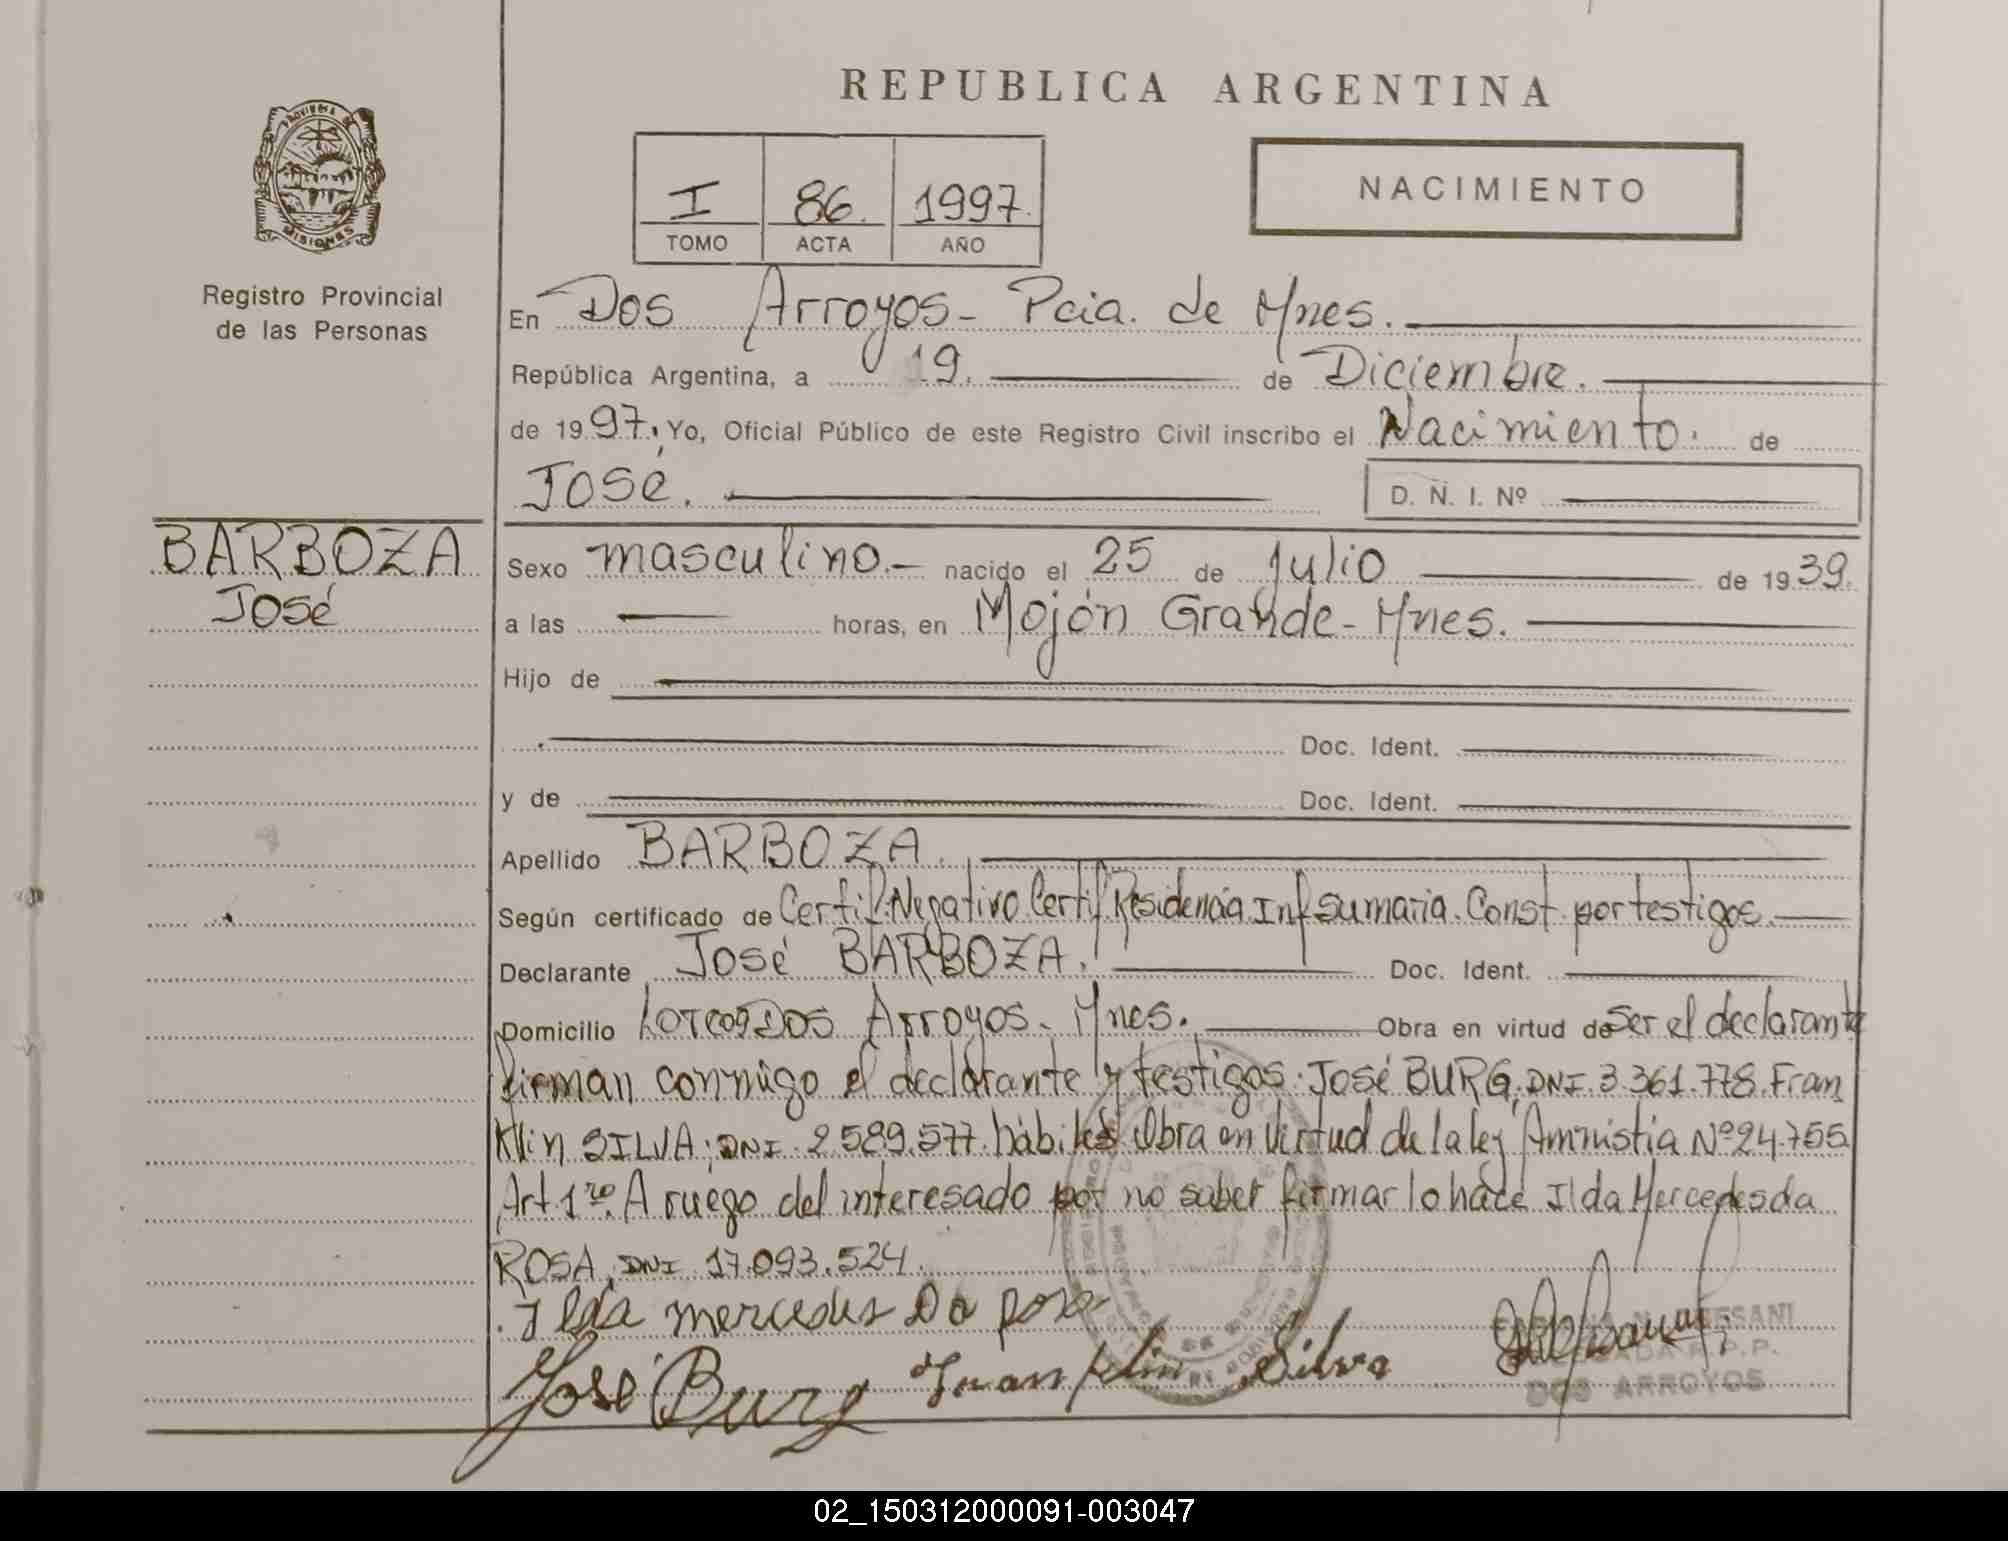 REPUBLICA ARGENTINA
PROVINCIA DE
MISIONES
Registro Provincial
de las Personas
I 86. 1997.
TOMO ACTA AÑO
NACIMIENTO
En Dos Arroyos - Pcia. de Mnes.
República Argentina, a 19. de Diciembre.
de 1997. Yo, Oficial Público de este Registro Civil inscribo el Nacimiento. de
José.
D. N. I. Nº
BARBOZA
José
Sexo masculino.- nacido el 25 de Julio de 1939.
a las horas, en Mojón Grande - Mnes.
Hijo de
Doc. Ident.
y de Doc. Ident.
Apellido BARBOZA.
Según certificado de Certif. Negativo Certif Residencia Inf sumaria. Const. por testigos.
Declarante José BARBOZA. Doc. Ident.
Domicilio Dos Arroyos - Mnes. Obra en virtud de Ser el declarante
firman conmigo el declarante y testigos: José BURG, DNI. 3.361.778. Fran
Klin SILVA; DNI. 2.589.577. hábiles Obra en virtud de la ley Amnistia Nº 24.755
Art. 1ro. A ruego del interesado por no saber firmar lo hace Ilda Mercedes da
ROSA, DNI 17.093.524.
Ilda mercedes Da Rosa
José Burg Franklin Silva
DOS ARROYOS
02_150312000091-003047